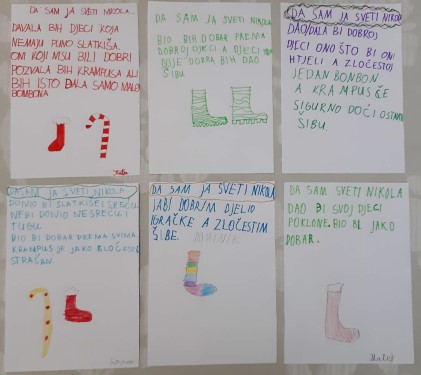 DA SAM JA SVETI NIKOLA...
DAVALA BIH DJECI KOJA
NEMAJU PUNO SLATKIŠA.
ONI KOJI NISU BILI DOBRI
POZVALA BIH KRAMPUSA ALI
BIH ISTO DALA SAMO MALO
BOMBONA
DA SAM JA SVETI NIKOLA
BIO BIH DOBAR PREMA
DOBROJ DJECI A DJECI
NIJE DOBRA BIH DAO
ŠIBU.
DA SAM JA SVETI NIKOLA
DAO/DALA BI DOBROJ
DJECI ONO ŠTO BI ONI
HTJELI A ZLOČESTOJ
JEDAN BONBON
A KRAMPUS ČE
SIGURNO DOĆI OSTAVIT
ŠIBU.
DA SAM JA SVETI NIKOLA
DONIO BI SLATKIŠE I SREĆU
NEBI DONIO NESREĆU I
TUGU.
BIO BI DOBAR PREMA SVIMA.
KRAMPUS JE JAKO ZLOČEST I
STRAŠAN.
DA SAM JA SVETI NIKOLA
JA BI DOBRIM DJELIO
IGRAČKE A ZLOČESTIM
ŠIBE.
DOMINIK
DA SAM SVETI NIKOLA
DAO BI SVOJ DJECI
POKLONE. BIO BI JAKO
DOBAR.